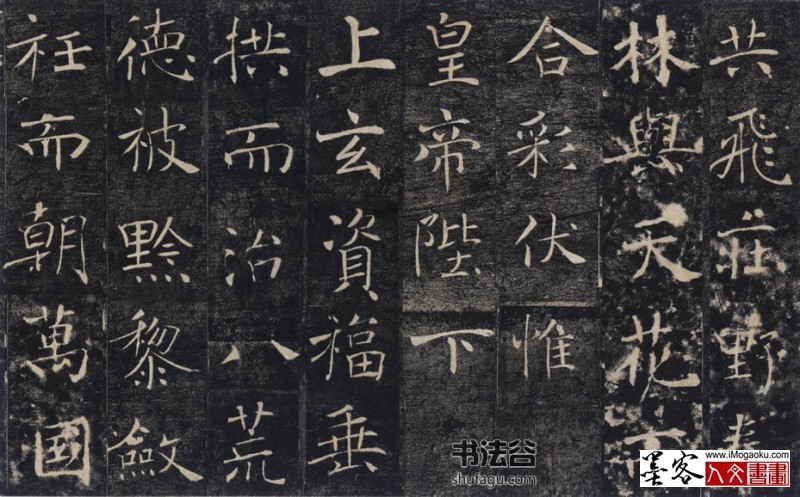 共飛莊野春
林與天花而
合彩伏惟
皇帝陛下
上玄資福垂
拱而治八荒
德被黔黎斂
衽而朝萬國
书法谷
shufagu.com
www.iMogaoku.com
墨客
人文書畫